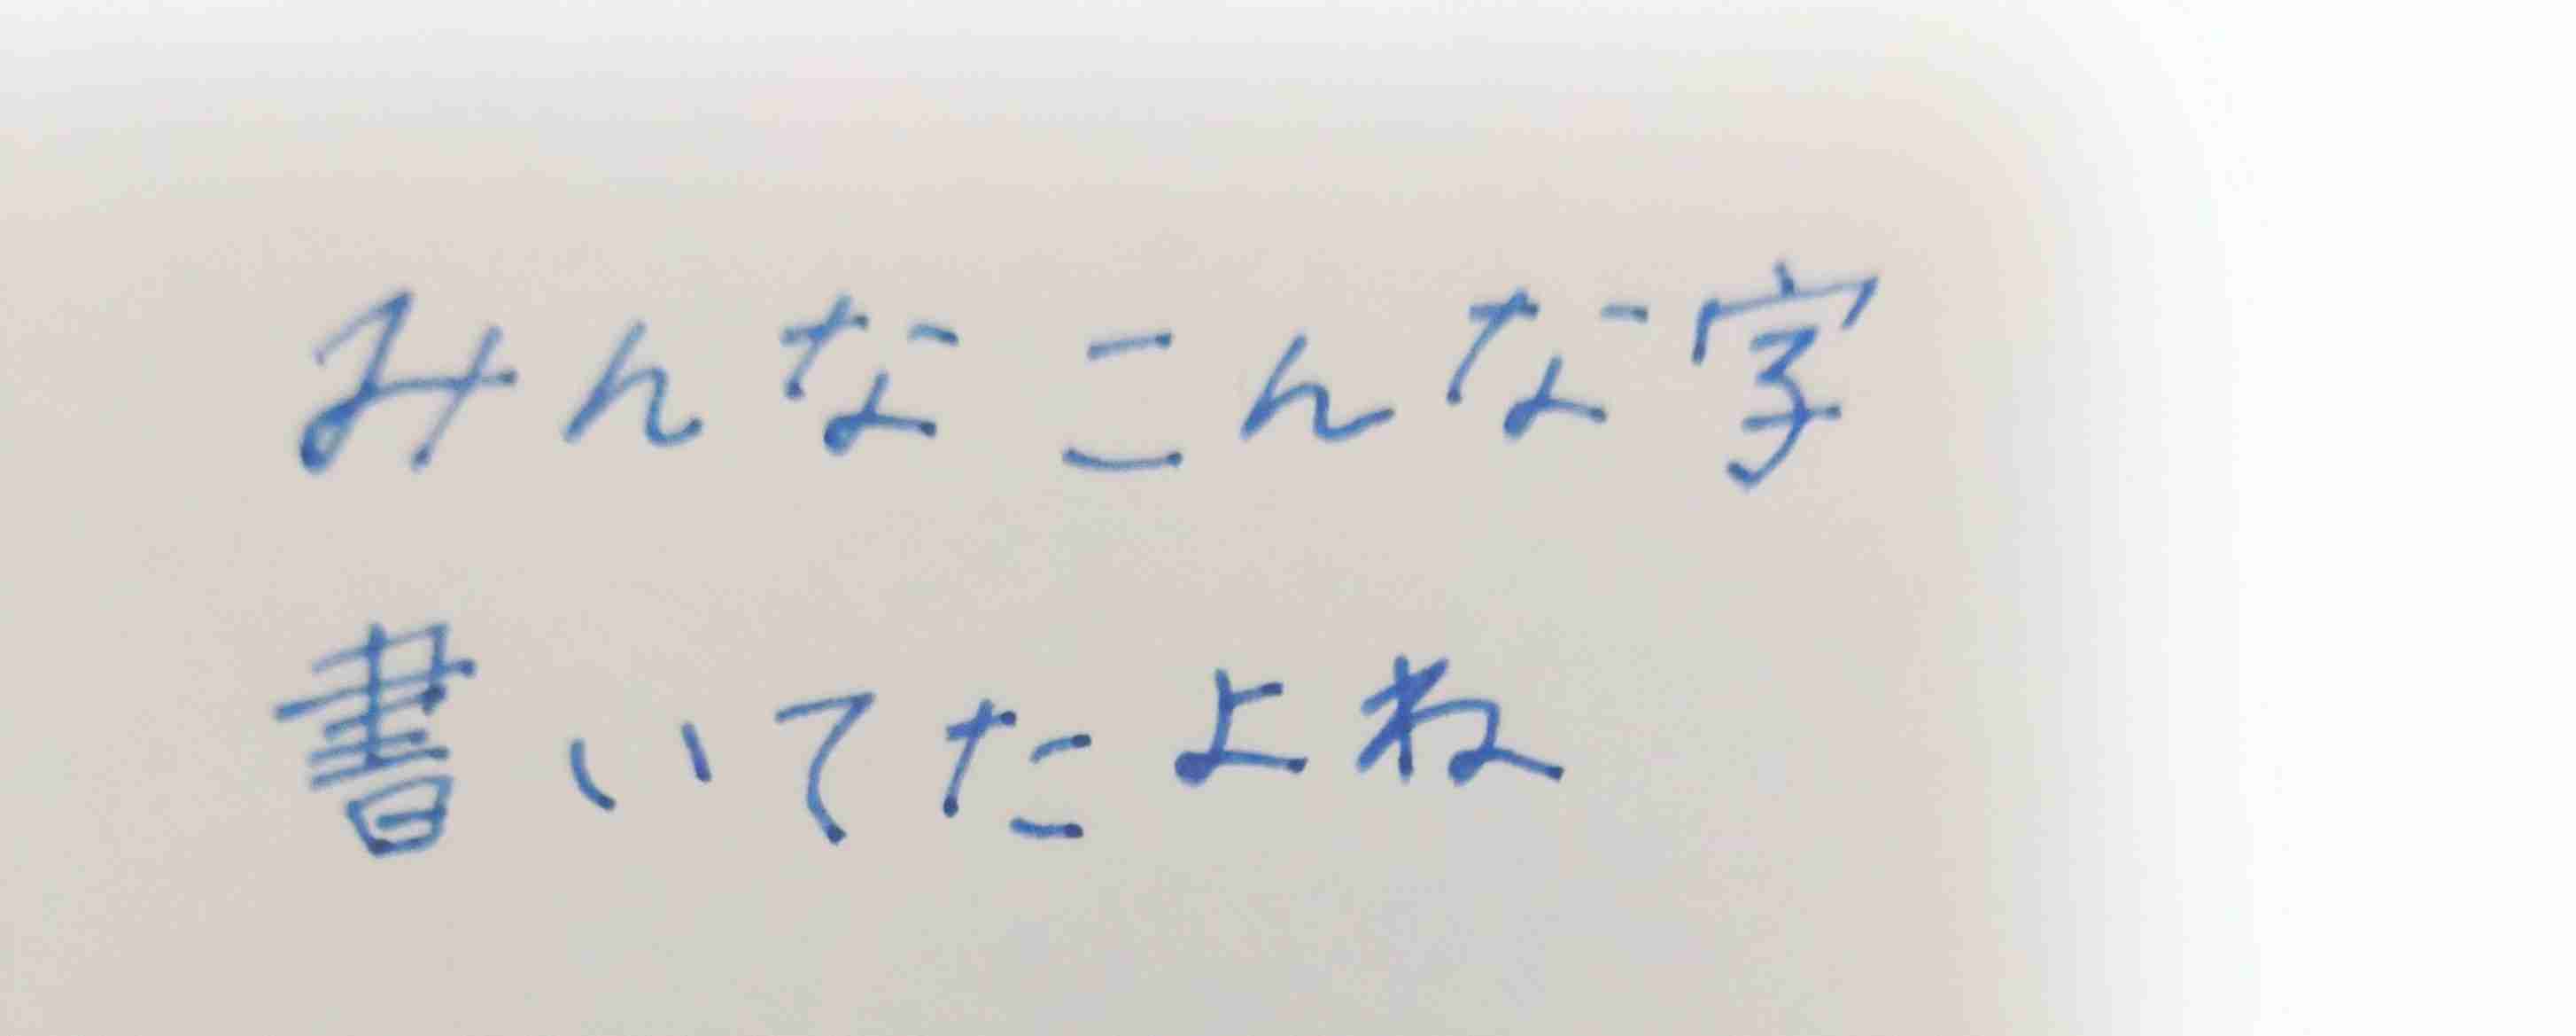 みんなこんな字
書いてたよね